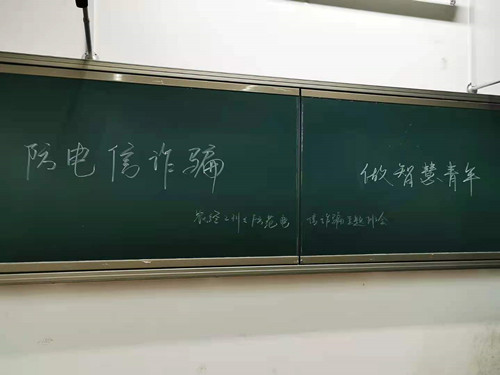 防电信诈骗 做智慧青年
防范电信诈骗主题班会